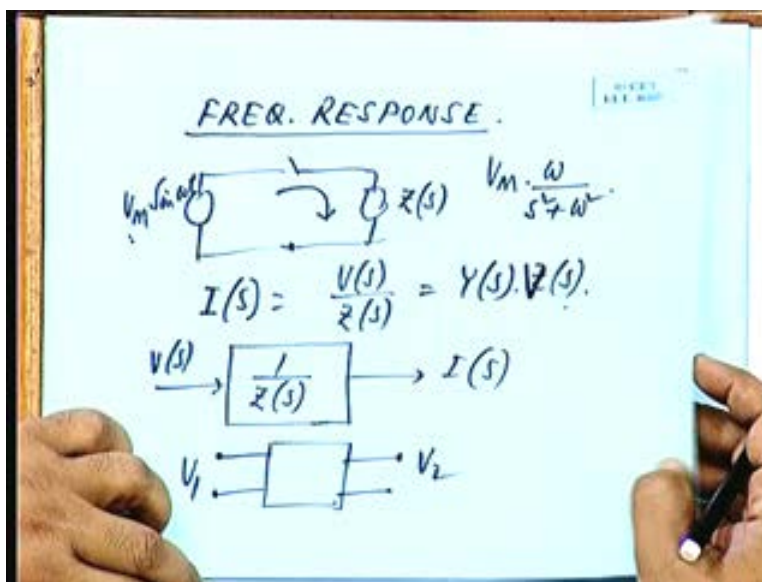 FREQ. RESPONSE.
V_M Sin ωt
Z(s)
V_M · ω / (s² + ω²).
I(s) = V(s) / Z(s) = Y(s).V(s).
V(s) → 1 / Z(s) → I(s)
V₁ V₂